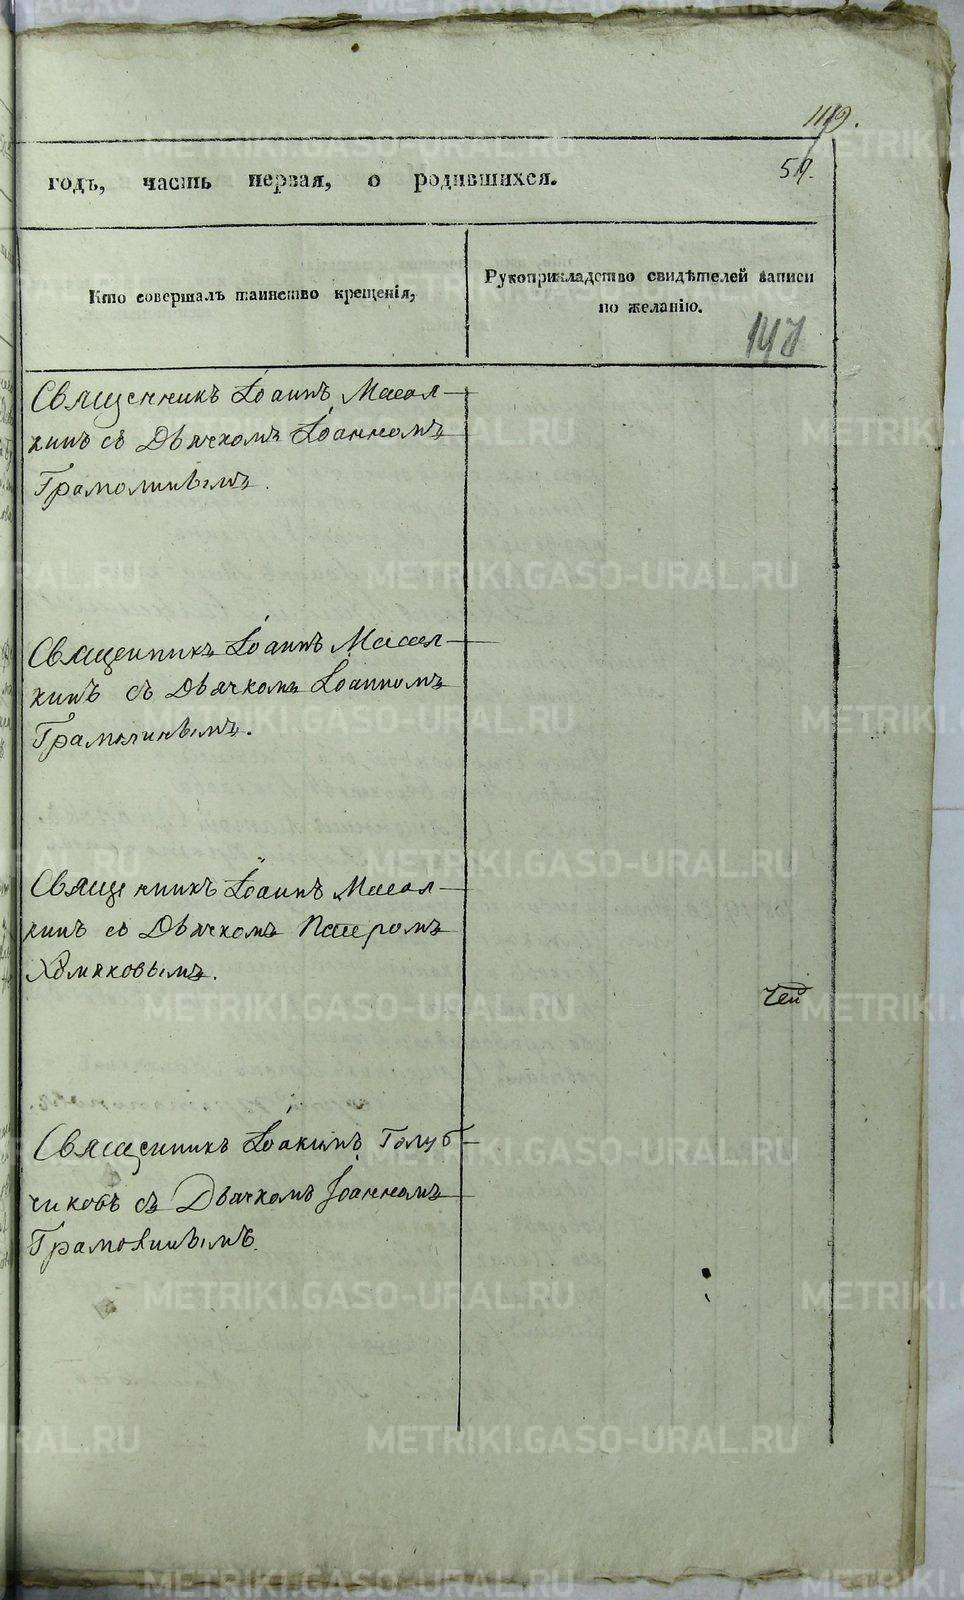 1119.
годъ, часть первая, о родившихся.
59.
Кто совершалъ таинство крещенія,
Рукоприкладство свидѣтелей записи
по желанію.
Священникъ Іоаннъ Масал-
кинъ съ Дьячкомъ Іоанномъ
Грамолинымъ.
Священникъ Іоаннъ Масал-
кинъ съ Дьячкомъ Іоанномъ
Грамолинымъ.
Священникъ Іоаннъ Масал-
кинъ съ Дьячкомъ Петромъ
Хомяковымъ.
Священникъ Іоакимъ Голуб-
чиковъ съ Дьячкомъ Іоанномъ
Грамолинымъ.
METRIKI.GASO-URAL.RU